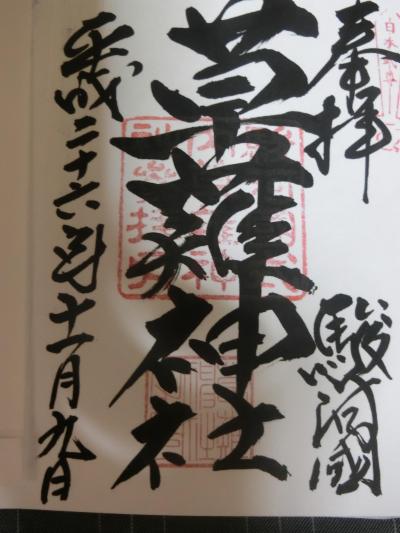 奉拝
駿河國
草薙神社
平成二十六年十一月九日